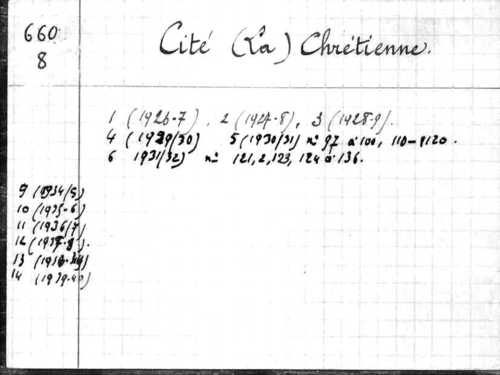 660
8
Cité (La) Chrétienne.
1 (1926-7). 2 (1927-8), 3 (1928-9).
4 (1929/30) 5 (1930/31) n° 97 à 100, 110-120.
6 1931/32) n° 121, 2, 123, 124 à 136.
9 (1934/5)
10 (1935-6)
11 (1936/7)
12 (1937-8).
13 (1938-39)
14 (1939-40)